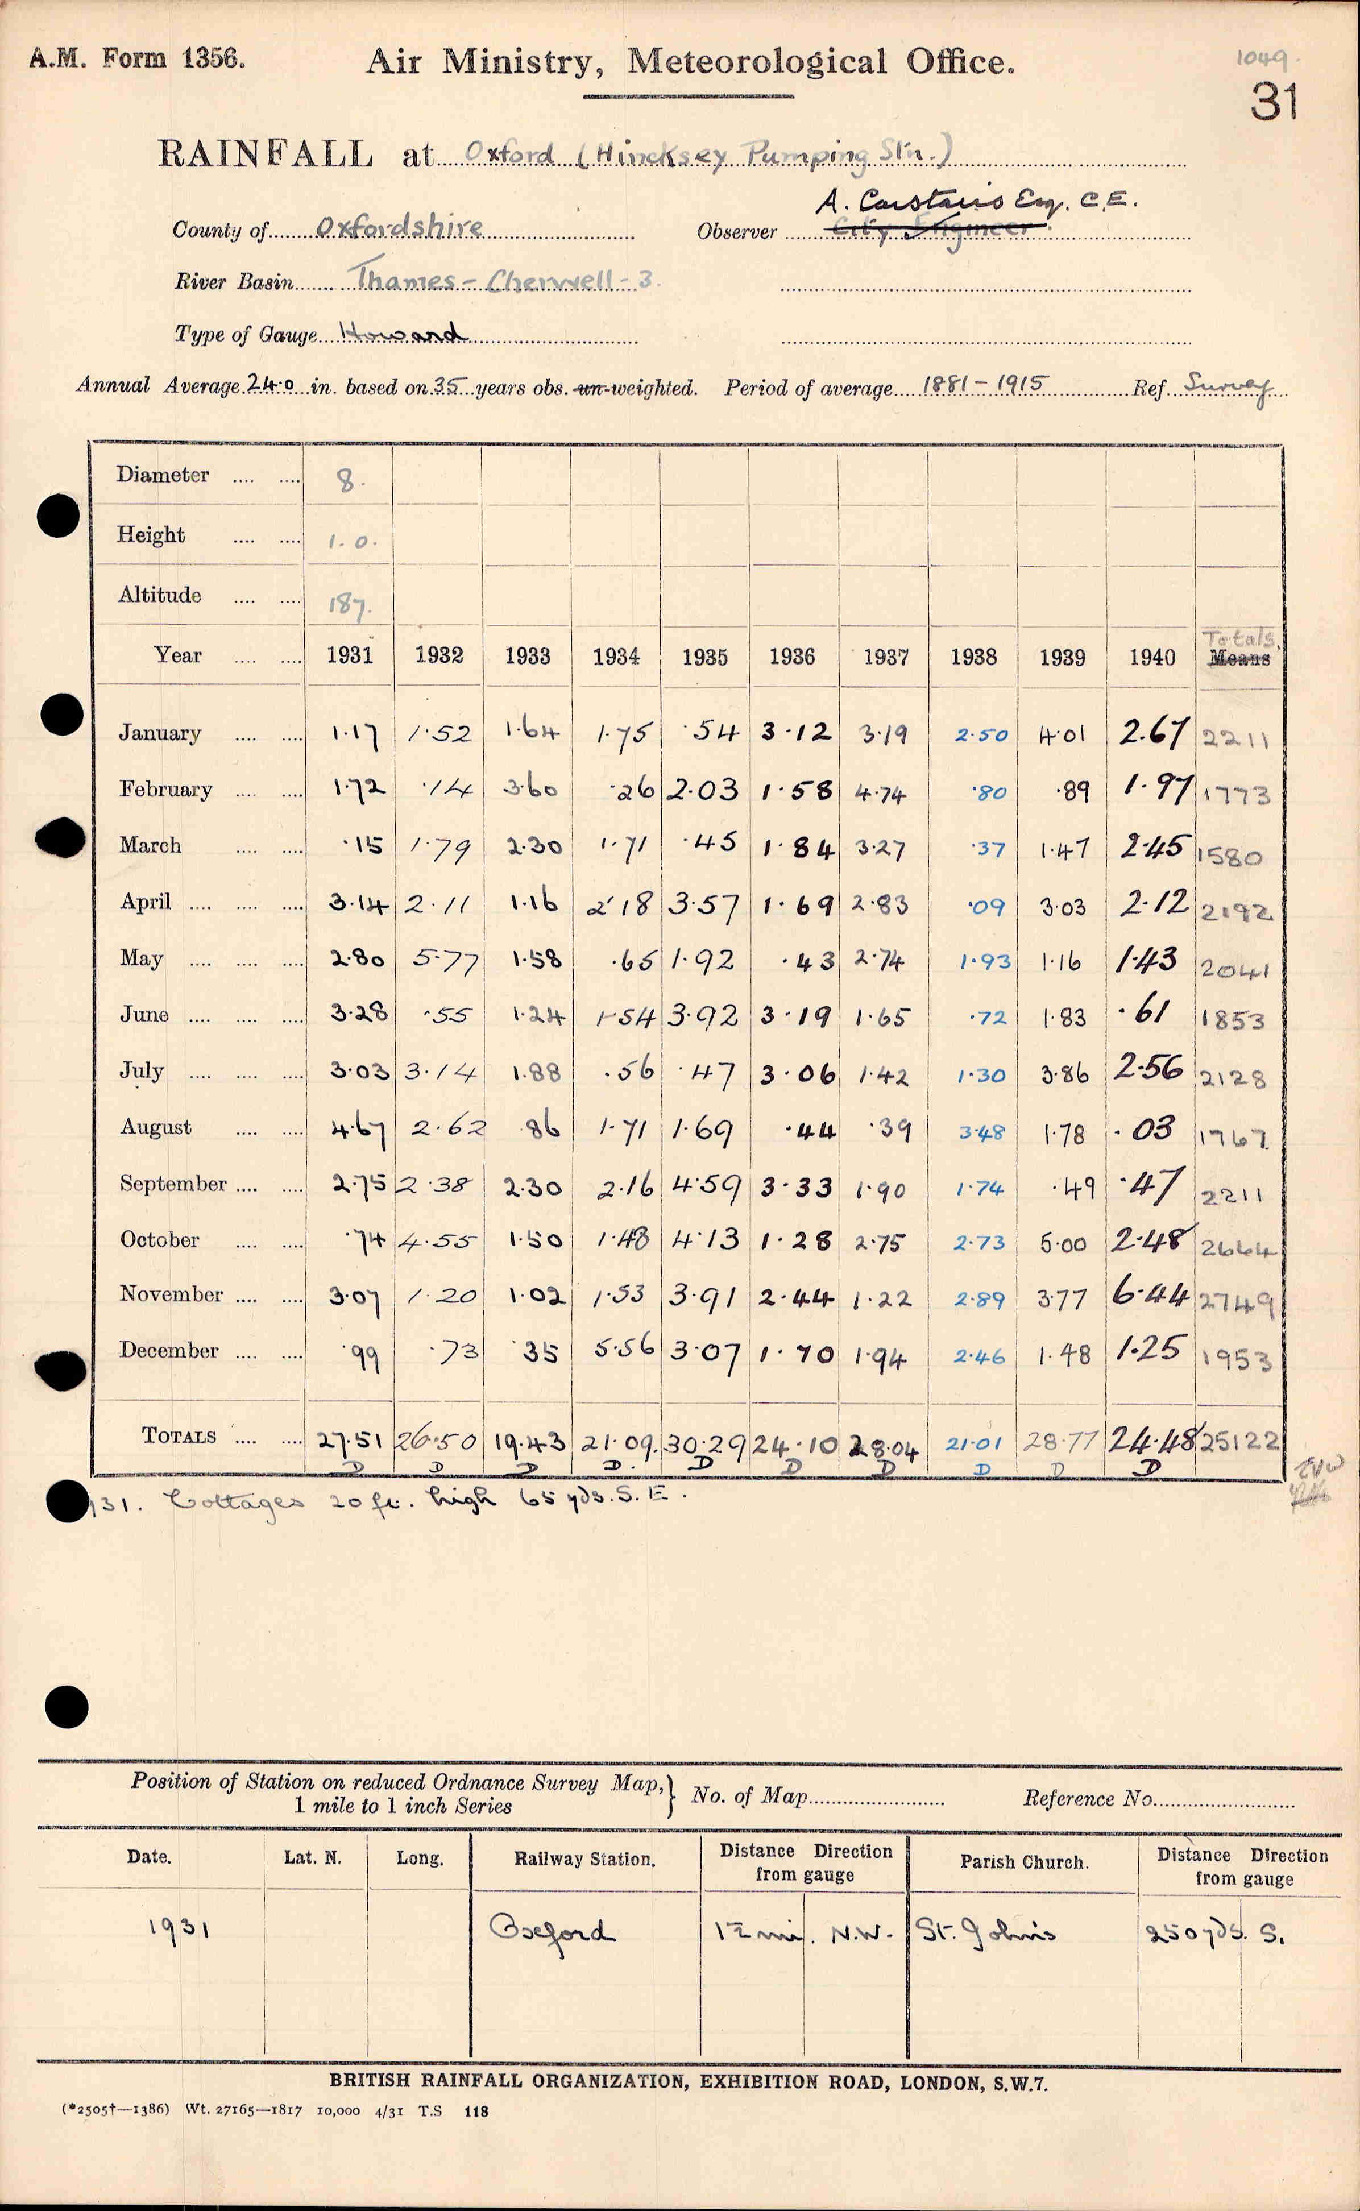 A.M. Form 1356.
Air Ministry, Meteorological Office.
1049.
31
RAINFALL at Oxford (Hincksey Pumping Stn.)
A. Carstairs Esq. C.E.
County of Oxfordshire Observer City Engineer
River Basin Thames - Cherwell - 3.
Type of Gauge Howard
Annual Average 24.0 in. based on 35 years obs. un-weighted. Period of average 1881 - 1915 Ref. Survey
Diameter 8.
Height 1. 0.
Altitude 187.
Totals.
Year 1931 1932 1933 1934 1935 1936 1937 1938 1939 1940 Means
January 1.17 1.52 1.64 1.75 .54 3.12 3.19 2.50 4.01 2.67 2211
February 1.72 .14 3.60 .26 2.03 1.58 4.74 .80 .89 1.97 1773
March .15 1.79 2.30 1.71 .45 1.84 3.27 .37 1.47 2.45 1580
April 3.14 2.11 1.16 2.18 3.57 1.69 2.83 .09 3.03 2.12 2192
May 2.80 5.77 1.58 .65 1.92 .43 2.74 1.93 1.16 1.43 2041
June 3.28 .55 1.24 1.54 3.92 3.19 1.65 .72 1.83 .61 1853
July 3.03 3.14 1.88 .56 .47 3.06 1.42 1.30 3.86 2.56 2128
August 4.67 2.62 .86 1.71 1.69 .44 .39 3.48 1.78 .03 1767
September 2.75 2.38 2.30 2.16 4.59 3.33 1.90 1.74 .49 .47 2211
October .74 4.55 1.50 1.48 4.13 1.28 2.75 2.73 5.00 2.48 2664
November 3.07 1.20 1.02 1.53 3.91 2.44 1.22 2.89 3.77 6.44 2749
December .99 .73 .35 5.56 3.07 1.70 1.94 2.46 1.48 1.25 1953
TOTALS 27.51 26.50 19.43 21.09. 30.29 24.10 28.04 21.01 28.77 24.48 25122
D D D D. D D D D D D
31. Cottages 20 ft. high 65 yds. S.E.
Position of Station on reduced Ordnance Survey Map, } No. of Map Reference No.
1 mile to 1 inch Series
Date. Lat. N. Long. Railway Station. Distance Direction from gauge Parish Church. Distance Direction from gauge
1931 Oxford 1½ mi. N.W. St. John's 250 yds. S.
BRITISH RAINFALL ORGANIZATION, EXHIBITION ROAD, LONDON, S.W.7.
(*2505†—1386) Wt. 27165—1817 10,000 4/31 T.S 118